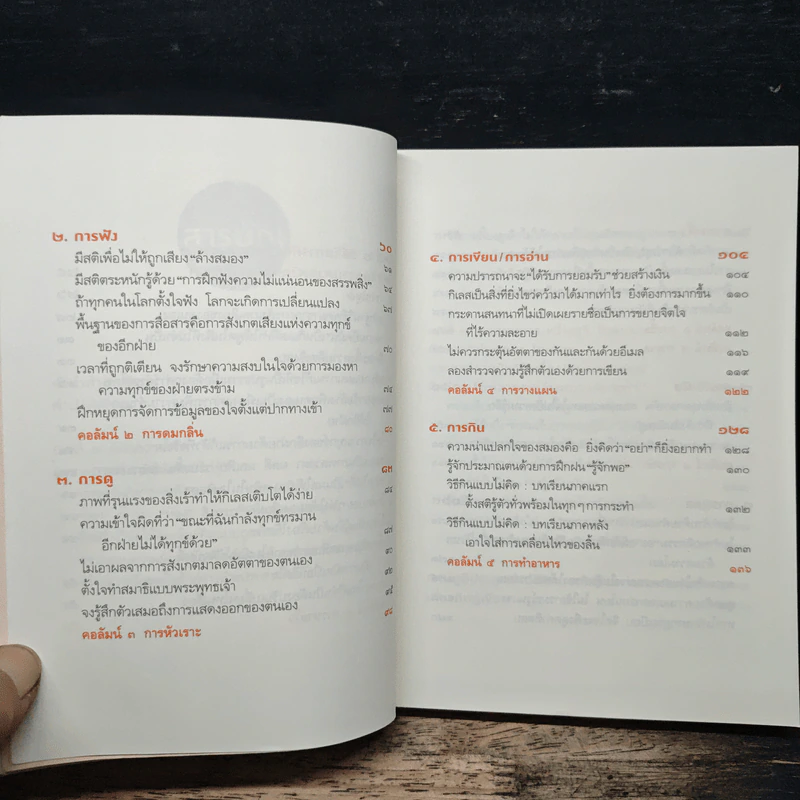 ๒. การฟัง ๖๐
มีสติเพื่อไม่ให้ถูกเสียง "ล้างสมอง" ๖๑
มีสติตระหนักรู้ด้วย "การฝึกฟังความไม่แน่นอนของสรรพสิ่ง" ๖๔
ถ้าทุกคนในโลกตั้งใจฟัง โลกจะเกิดการเปลี่ยนแปลง ๖๗
พื้นฐานของการสื่อสารคือการสังเกตเสียงแห่งความทุกข์
ของอีกฝ่าย ๗๐
เวลาที่ถูกติเตียน จงรักษาความสงบในใจด้วยการมองหา
ความทุกข์ของฝ่ายตรงข้าม ๗๔
ฝึกหยุดการจัดการข้อมูลของใจตั้งแต่ปากทางเข้า ๗๗
คอลัมน์ ๒ การดมกลิ่น ๘๐
๓. การดู ๘๓
ภาพที่รุนแรงของสิ่งเร้าทำให้กิเลสเติบโตได้ง่าย ๘๔
ความเข้าใจผิดที่ว่า "ขณะที่ฉันกำลังทุกข์ทรมาน
อีกฝ่ายไม่ได้ทุกข์ด้วย" ๘๗
ไม่เอาผลจากการสังเกตมาลดอัตตาของตนเอง ๙๐
ตั้งใจทำสมาธิแบบพระพุทธเจ้า ๙๒
จงรู้สึกตัวเสมอถึงการแสดงออกของตนเอง ๙๕
คอลัมน์ ๓ การหัวเราะ ๙๘
๔. การเขียน/การอ่าน ๑๐๔
ความปรารถนาจะ "ได้รับการยอมรับ" ช่วยสร้างเงิน ๑๐๕
กิเลสเป็นสิ่งที่ยิ่งไขว่คว้ามาได้มากเท่าไร ยิ่งต้องการมากขึ้น ๑๑๐
กระดานสนทนาที่ไม่เปิดเผยรายชื่อเป็นการขยายจิตใจ
ที่ไร้ความละอาย ๑๑๒
ไม่ควรกระตุ้นอัตตาของกันและกันด้วยอีเมล ๑๑๖
ลองสำรวจความรู้สึกตัวเองด้วยการเขียน ๑๑๙
คอลัมน์ ๔ การวางแผน ๑๒๒
๕. การกิน ๑๒๘
ความน่าแปลกใจของสมองคือ ยิ่งคิดว่า "อย่า" ก็ยิ่งอยากทำ ๑๒๘
รู้จักประมาณตนด้วยการฝึกฝน "รู้จักพอ" ๑๓๐
วิธีกินแบบไม่คิด : บทเรียนภาคแรก
ตั้งสติรู้ตัวทั่วพร้อมในทุกๆ การกระทำ ๑๓๒
วิธีกินแบบไม่คิด : บทเรียนภาคหลัง
เอาใจใส่การเคลื่อนไหวของลิ้น ๑๓๓
คอลัมน์ ๕ การทำอาหาร ๑๓๖